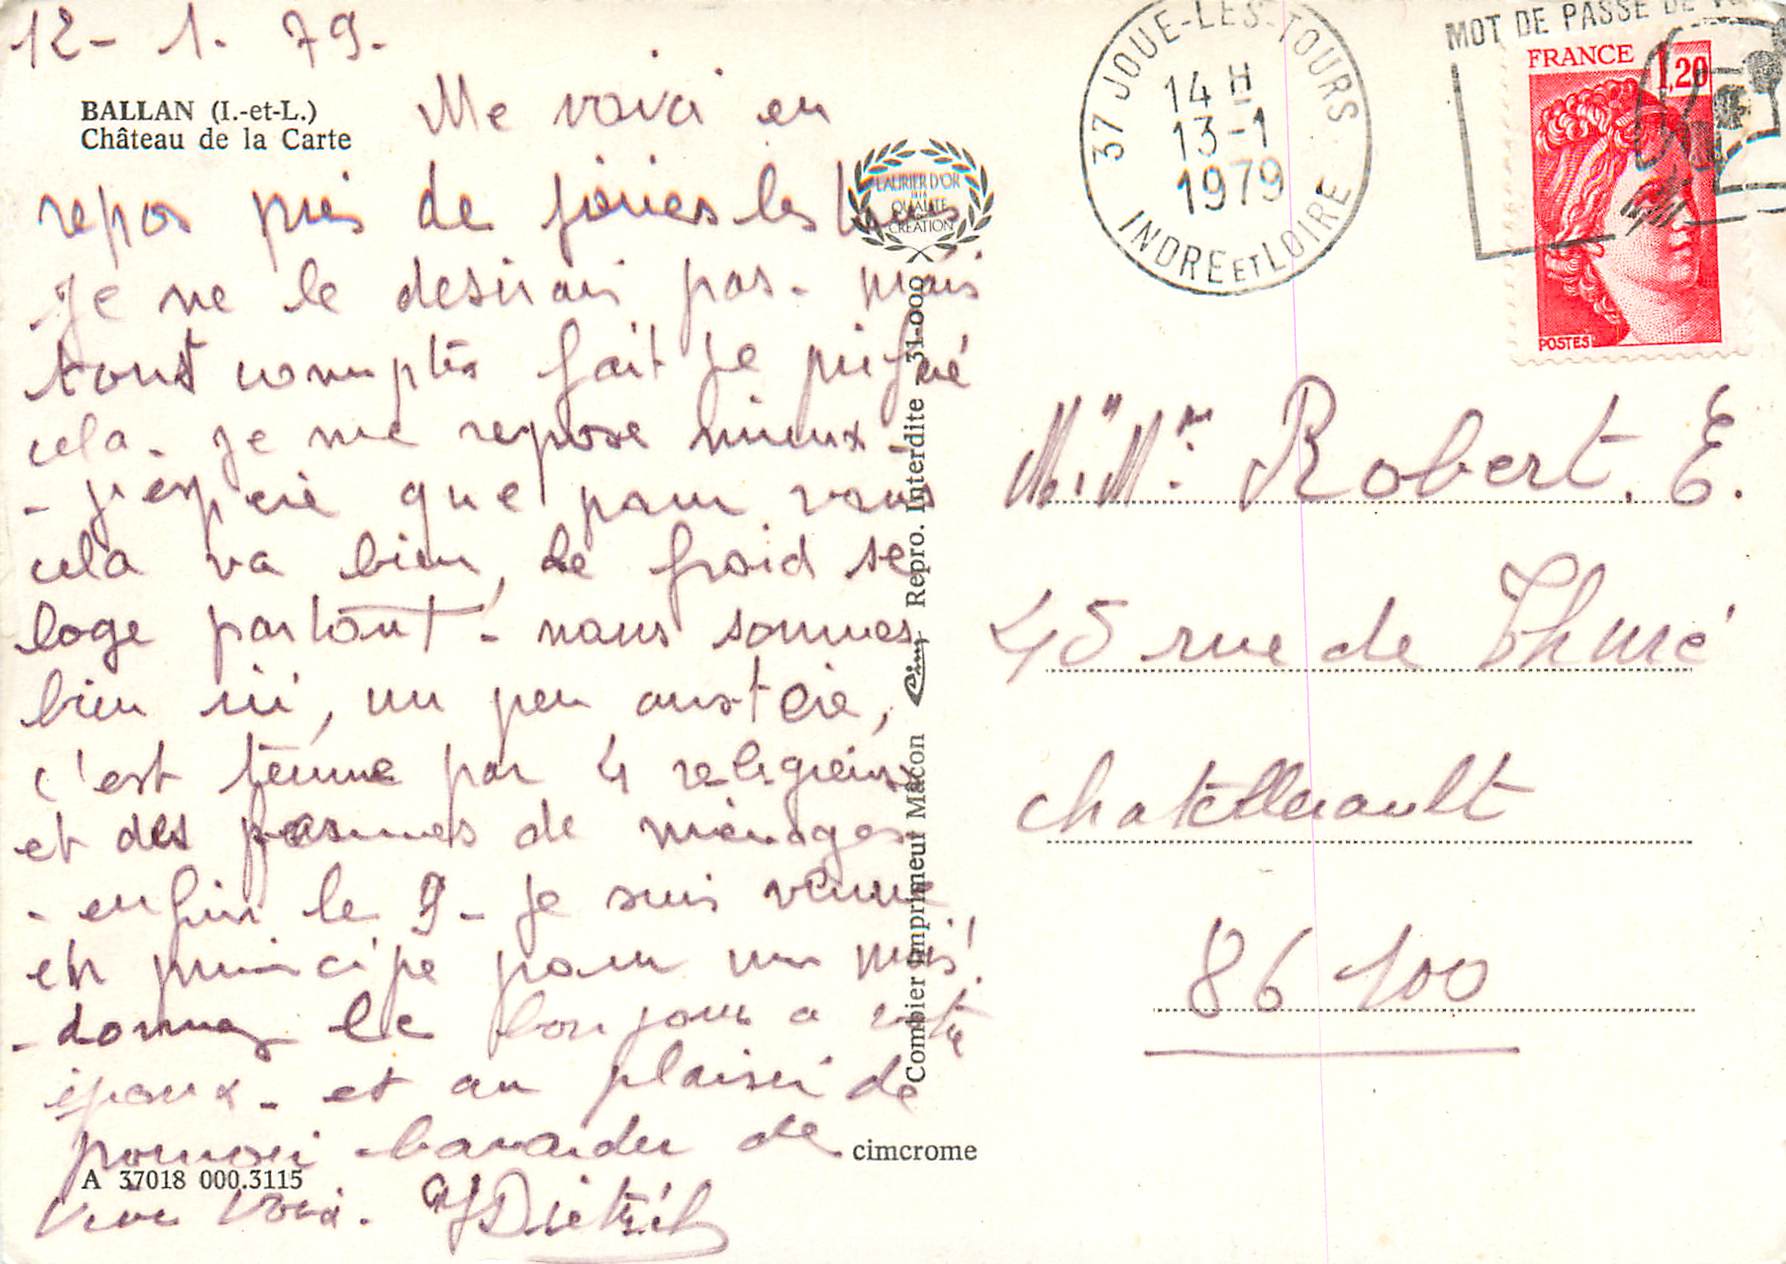 12 - 1. 79.
BALLAN (I.-et-L.)
Château de la Carte
Me voici en
repos près de joués les tours
Je ne le desirais pas - mais
tout comptes fait je préféré
cela. je me repose mieux -
- j'éspère que pour vous
cela va bien, le froid se
loge partout - nous sommes
bien ici, un peu austère,
c'est tenue par 4 religieux
et des femmes de ménages
- enfin le 9 - je suis venue
en principe pour un mois!
- donnez le bonjour a votre
époux - et au plaisir de
pouvoir bavarder de
vive voix. Dietrich
A 37018 000.3115
cimcrome
LAURIER D'OR
QUALITÉ
CRÉATION
Combier Imprimeur Macon Cim Repro. Interdite 31-000
37 JOUE-LES-TOURS
14 H
13-1
1979
INDRE ET LOIRE
MOT DE PASSE DE
FRANCE
1,20
POSTES
M. Mme Robert. E.
45 rue de Thuré
chatellerault
86 100